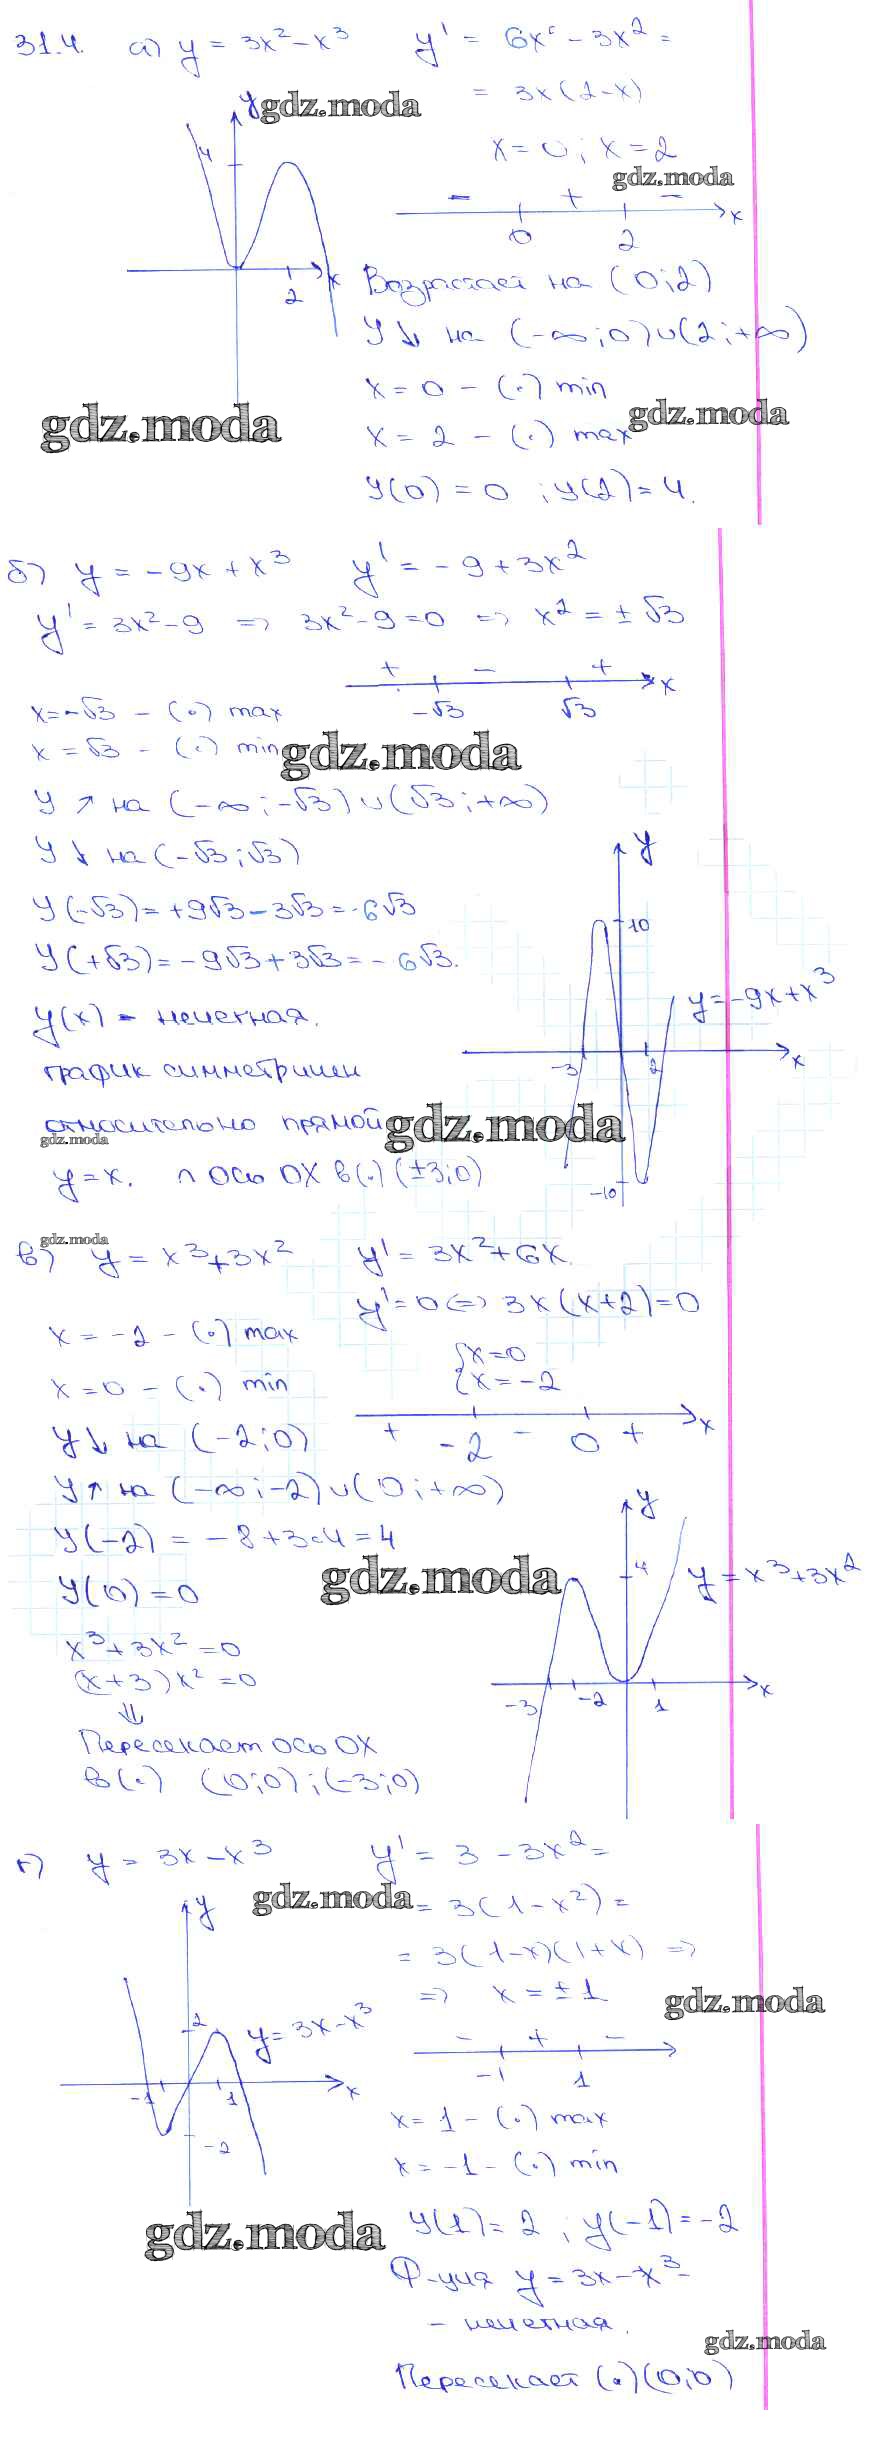 31.4. а) y = 3x² - x³ y' = 6x - 3x² =
= 3x(2-x)
y
gdz.moda
4
x = 0; x = 2
gdz.moda
- + -
0 2 x
2 x
Возрастает на (0;2)
y ↓ на (-∞;0)∪(2;+∞)
x = 0 - (.) min
gdz.moda
gdz.moda
x = 2 - (.) max
y(0) = 0 ; y(2) = 4.
б) y = -9x + x³ y' = -9 + 3x²
y' = 3x² - 9 => 3x² - 9 = 0 => x² = ± √3
+ - +
-√3 √3 x
x = -√3 - (.) max
x = √3 - (.) min
gdz.moda
y ↑ на (-∞;-√3)∪(√3;+∞)
y ↓ на (-√3;√3)
y(-√3) = +9√3 - 3√3 = -6√3
y(+√3) = -9√3 + 3√3 = -6√3.
y
10
y = -9x + x³
-3 2 x
-10
y(x) - нечетная.
график симметричен
относительно прямой
gdz.moda
gdz.moda
y = x. ∩ ось OX в(.) (±3;0)
gdz.moda
в) y = x³ + 3x² y' = 3x² + 6x.
y' = 0 <=> 3x(x+2) = 0
x = -2 - (.) max
{x = 0
{x = -2
x = 0 - (.) min
+ -2 - 0 + x
y ↓ на (-2;0)
y ↑ на (-∞;-2)∪(0;+∞)
y(-2) = -8 + 3·4 = 4
gdz.moda
y
4
y = x³ + 3x²
-3 -2 1 x
y(0) = 0
x³ + 3x² = 0
(x+3)x² = 0
⇓
Пересекает ось OX
в(.) (0;0);(-3;0)
г) y = 3x - x³ y' = 3 - 3x² =
gdz.moda
= 3(1 - x²) =
= 3(1-x)(1+x) =>
=> x = ± 1
gdz.moda
y
2
y = 3x - x³
-1 1 x
-2
- + -
-1 1
x = 1 - (.) max
x = -1 - (.) min
gdz.moda
y(1) = 2 ; y(-1) = -2
Ф-ция y = 3x - x³ -
- нечетная.
gdz.moda
Пересекает (.)(0;0)